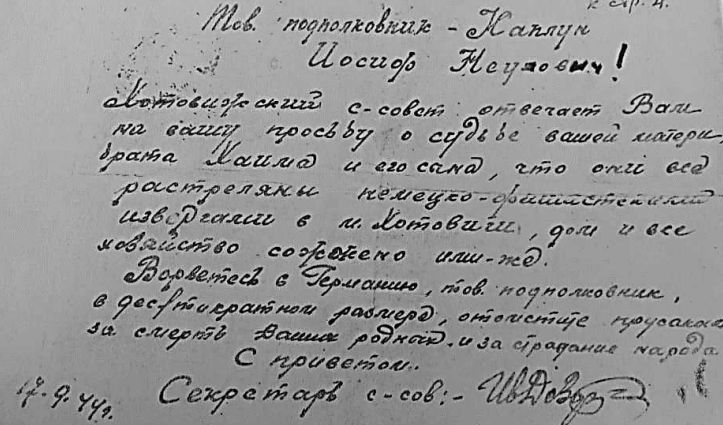 к стр. 4.
Тов. подполковник - Каплун
Иосиф Неухович!
Хотовижский с-совет отвечает Вам
на вашу просьбу о судьбе вашей матери,
брата Хаима и его сына, что они все
растреляны немецко-фашистскими
извергами в м. Хотовичи, дом и все
хозяйство сожжено ими-же.
Ворветесь в Германию, тов. подполковник,
в десятикратном размере, отомстите прусакам
за смерть Ваших родных и за страдание народа
С приветом.
Секретарь с-сов:-
17.9.44г.